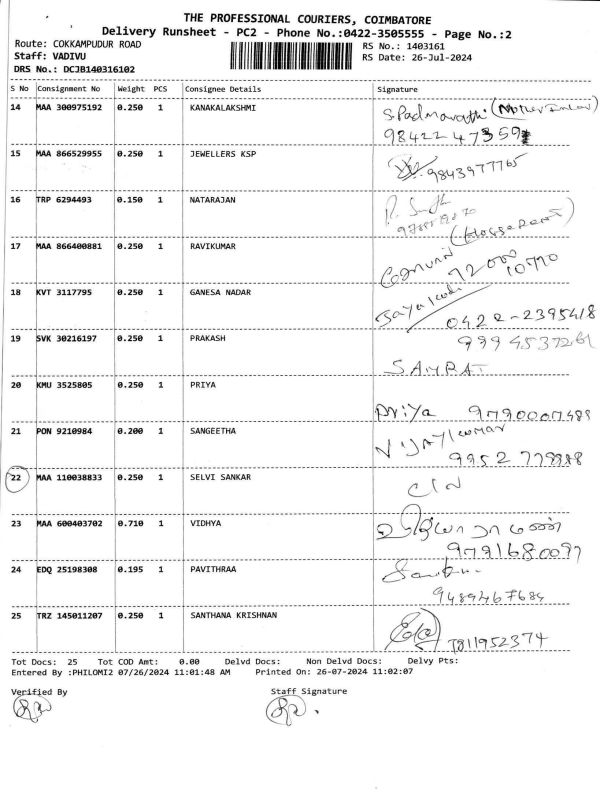 THE PROFESSIONAL COURIERS, COIMBATORE
Delivery Runsheet - PC2 - Phone No.:0422-3505555 - Page No.:2
Route: COKKAMPUDUR ROAD RS No.: 1403161
Staff: VADIVU RS Date: 26-Jul-2024
DRS No.: DCJB140316102
S No Consignment No Weight PCS Consignee Details Signature
14 MAA 300975192 0.250 1 KANAKALAKSHMI S.Padmavathi
15 MAA 866529955 0.250 1 JEWELLERS KSP 9843977765
16 TRP 6294493 0.150 1 NATARAJAN
17 MAA 866400881 0.250 1 RAVIKUMAR
18 KVT 3117795 0.250 1 GANESA NADAR
0422-2395418
19 SVK 30216197 0.250 1 PRAKASH
SAMRAT
20 KMU 3525805 0.250 1 PRIYA
Priya 9790007488
21 PON 9210984 0.200 1 SANGEETHA Vijaykumar
22 MAA 110038833 0.250 1 SELVI SANKAR
23 MAA 600403702 0.710 1 VIDHYA
24 EDQ 25198308 0.195 1 PAVITHRAA
9489467684
25 TRZ 145011207 0.250 1 SANTHANA KRISHNAN
7811952374
Tot Docs: 25 Tot COD Amt: 0.00 Delvd Docs: Non Delvd Docs: Delvy Pts:
Entered By :PHILOMI2 07/26/2024 11:01:48 AM Printed On: 26-07-2024 11:02:07
Verified By Staff Signature